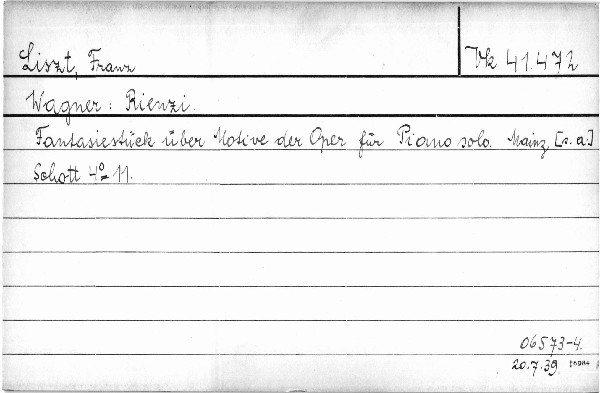 Liszt, Franz
Vk 41.472
Wagner: Rienzi.
Fantasiestück über Motive der Oper für Piano solo. Mainz, [s. a.]
Schott 4° 11.
06573-4.
20.7.39.